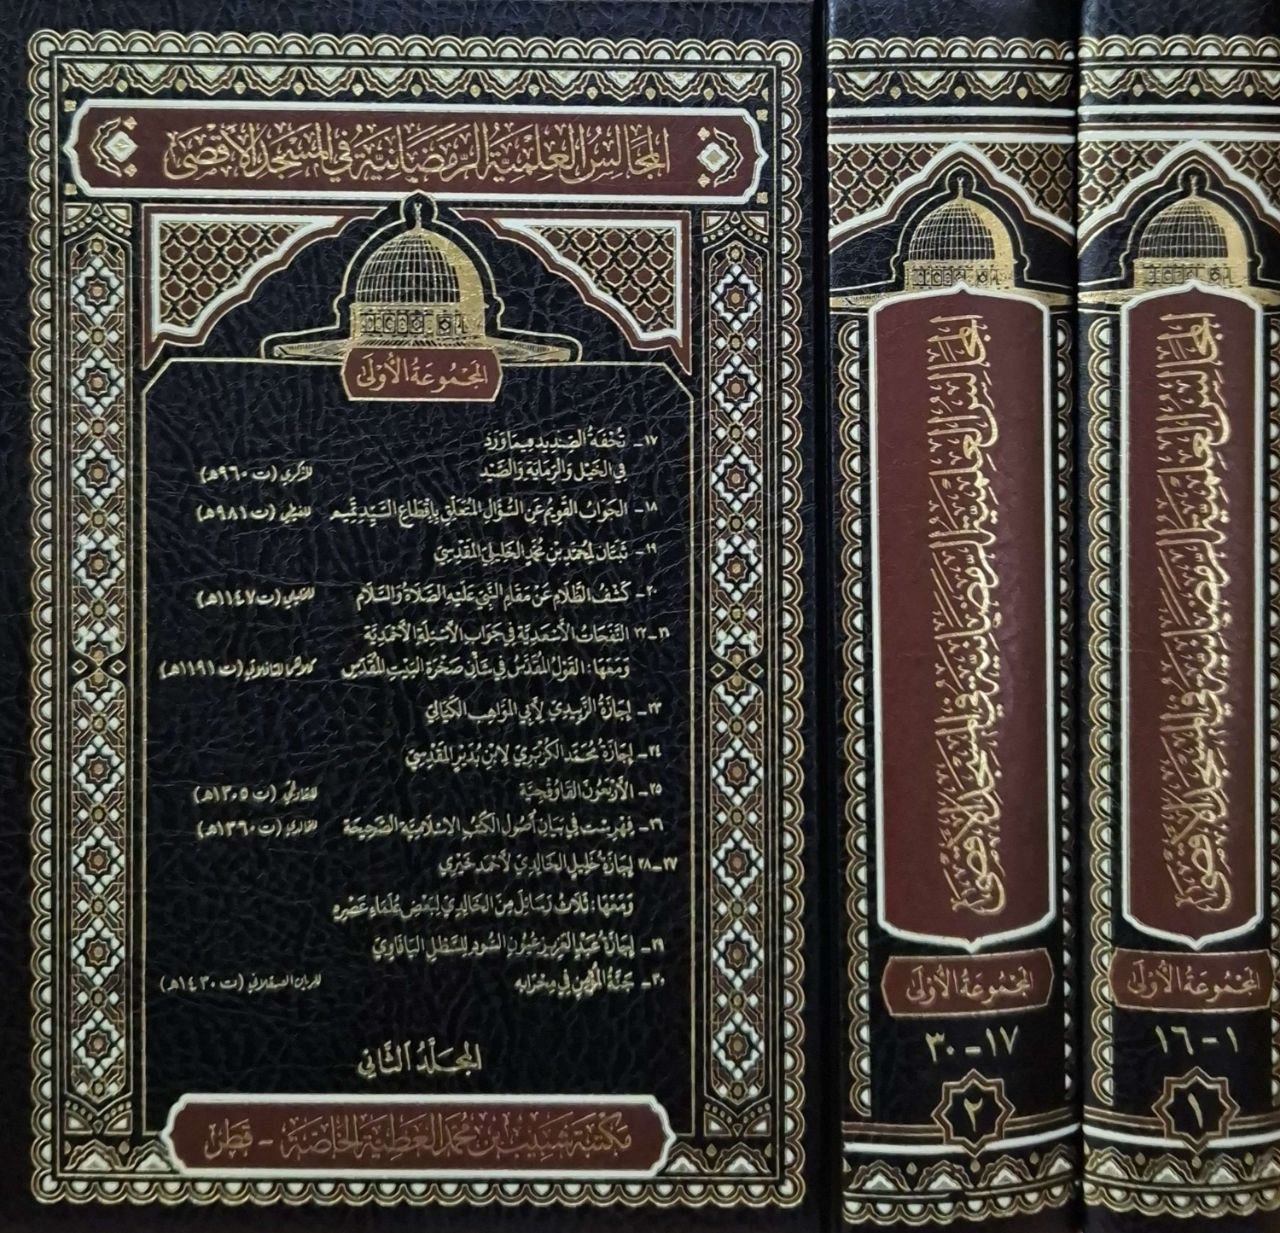 المجالس العلمية الرمضانية في المسجد الأقصى
المجموعة الأولى
١٧- تحفة الصنديد فيما ورد
في الخيل والرماية والصيد (ت ٩٦٠هـ)
١٨- الجواب القويم عن السؤال المتعلق بإقطاع السيد تميم للغيطي (ت ٩٨١هـ)
١٩- ثبتان لمحمد بن محمد الخليلي المقدسي
٢٠- كشف الظلام عن مقام النبي عليه الصلاة والسلام للخليلي (ت ١١٤٧هـ)
٢١-٢٢ النفحات الأسعدية في جواب الأسئلة الأحمدية
ومعها: القول المقدس في شأن صخرة البيت المقدس كلاهما للتافلاتي (ت ١١٩١هـ)
٢٣- إجازة الزبيدي لأبي المواهب الكيالي
٢٤- إجازة محمد الكزبري لابن بدير المقدسي
٢٥- الأربعون القاوقجية للقاوقجي (ت ١٣٠٥هـ)
٢٦- فهرست في بيان أصول الكتب الإسلامية الصحيحة للخالدي (ت ١٣٦٠هـ)
٢٧-٢٨ إجازة خليل الخالدي لأحمد خيري
ومعها: ثلاث رسائل من الخالدي لبعض علماء عصره
٢٩- إجازة عبد العزيز عيون السود للسطل اليافاوي
٣٠- جنة المؤمن في محرابه (ت ١٤٣٠هـ)
المجلد الثاني
مكتبة شبيب بن محمد العطية الخاصة - قطر
المجالس العلمية الرمضانية في المسجد الأقصى
المجموعة الأولى
١٧-٣٠
٢
المجالس العلمية الرمضانية في المسجد الأقصى
المجموعة الأولى
١-١٦
١